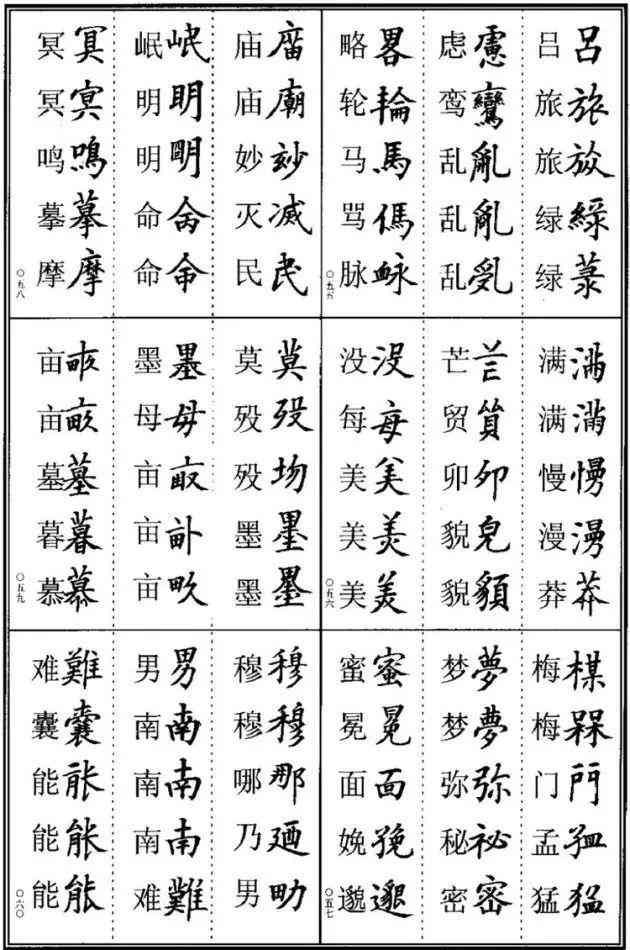 吕呂
旅旅
旅㫆
绿綠
绿菉
虑慮
鸾鸞
乱亂
乱亂
乱乿
略畧
轮輪
马馬
骂傌
脉衇
〇五五
满满
满滿
慢慢
漫漫
莽莽
芒芒
贸貿
卯夘
貌皃
貌貌
没没
每每
美美
美羙
美美
〇五六
梅楳
梅槑
门門
孟孟
猛猛
梦夢
梦夢
弥弥
秘祕
密密
蜜蜜
冕冕
面面
娩娩
邈邈
〇五七
庙庿
庙廟
妙玅
灭滅
民民
岷岷
明明
明朙
命命
命命
冥冥
冥冥
鸣鳴
摹摹
摩摩
〇五八
莫莫
殁殁
殁歾
墨墨
墨墨
墨墨
母母
亩畝
亩畝
亩畝
亩畝
亩畝
墓墓
暮暮
慕慕
〇五九
穆穆
穆穆
哪那
乃廼
男男
男男
南南
南南
南南
难難
难難
囊囊
能能
能能
能能
〇六〇